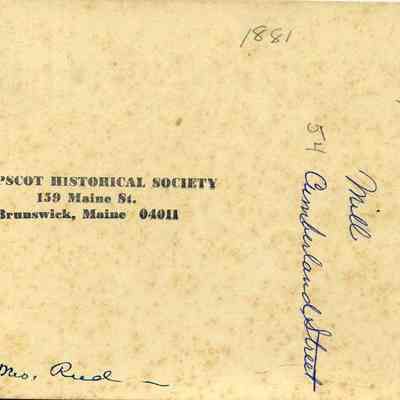 1881
'PSCOT HISTORICAL SOCIETY
159 Maine St.
Brunswick, Maine 04011
Mill
54 Cumberland Street
Reed